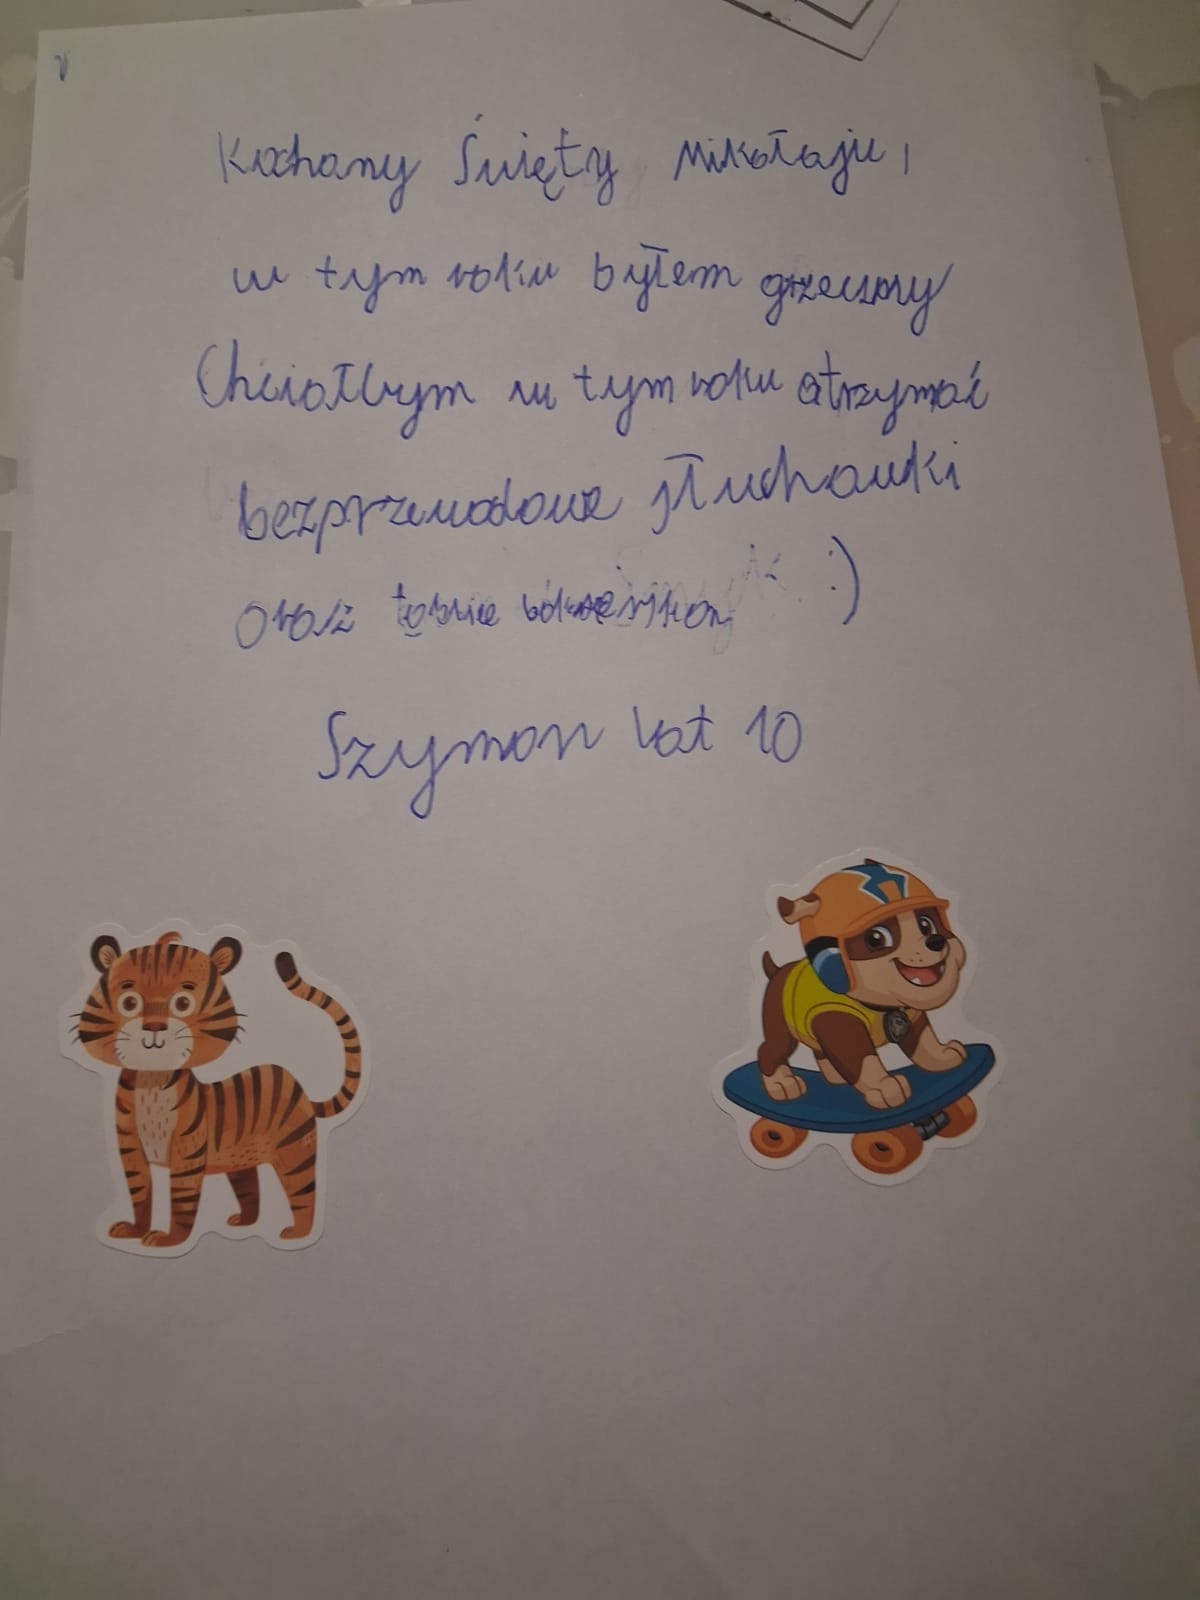 Kochany Święty Mikołaju,
w tym roku byłem grzeczny
Chciałbym w tym roku otrzymać
bezprzewodowe słuchawki
oraz :)
Szymon lat 10